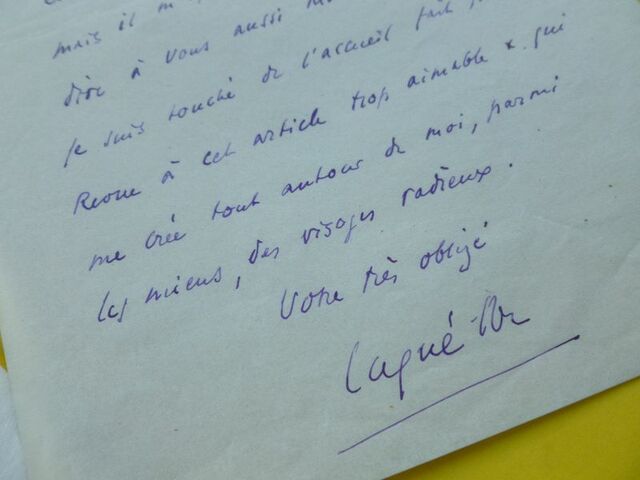 mais il m
dire à vous aussi
Je suis touché de l'accueil fait p
Revue à cet article trop aimable x qui
me crée tout autour de moi, parmi
les miens, des visages radieux.
Votre très obligé